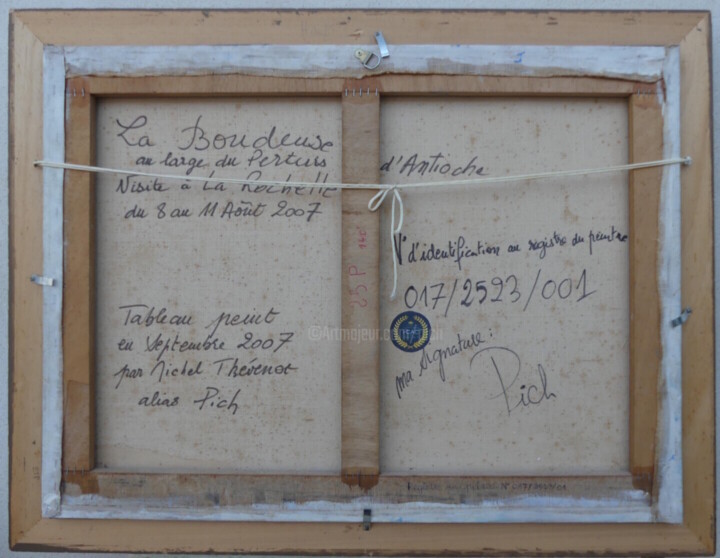 La Boudeuse
au large du Pertuis d'Antioche
Visite à La Rochelle
du 8 au 11 Août 2007
N° d'identification au registre du peintre
017/2523/001
Tableau peint
en Septembre 2007
par Michel Thévenot
alias Pich
ma signature :
Pich
25 P
©Artmajeur.com